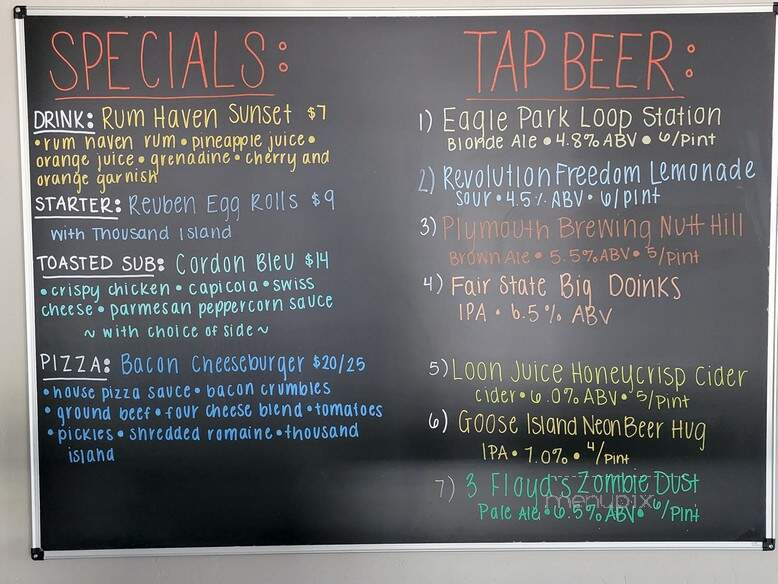 SPECIALS:
DRINK: Rum Haven Sunset $7
• rum haven rum • pineapple juice •
orange juice • grenadine • cherry and
orange garnish
STARTER: Reuben Egg Rolls $9
with Thousand Island
TOASTED SUB: Cordon Bleu $14
• crispy chicken • capicola • swiss
cheese • parmesan peppercorn sauce
~ with choice of side ~
PIZZA: Bacon Cheeseburger $20/25
• house pizza sauce • bacon crumbles
• ground beef • four cheese blend • tomatoes
• pickles • shredded romaine • thousand
island
TAP BEER:
1) Eagle Park Loop Station
Blonde Ale • 4.8% ABV • 6/Pint
2) Revolution Freedom Lemonade
Sour • 4.5% ABV • 6/pint
3) Plymouth Brewing Nutt Hill
Brown Ale • 5.5% ABV • 5/Pint
4) Fair State Big Doinks
IPA • 6.5% ABV
5) Loon Juice Honeycrisp Cider
cider • 6.0% ABV • 5/Pint
6) Goose Island Neon Beer Hug
IPA • 7.0% • 4/Pint
7) 3 Floyd's Zombie Dust
Pale Ale • 6.5% ABV • 6/Pint
menupix